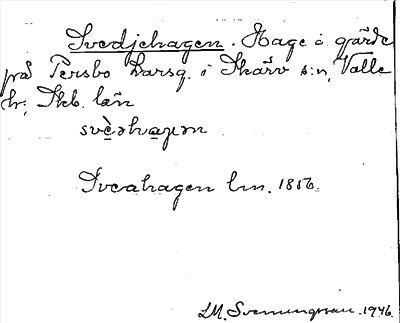 Svedjehagen. Hage o. gärde
på Persbo Larsg. i Skärv s:n, Valle
hr; Skb. län
svèəhagən
Sveahagen lm. 1856.
LM. Svenungsson. 1946.